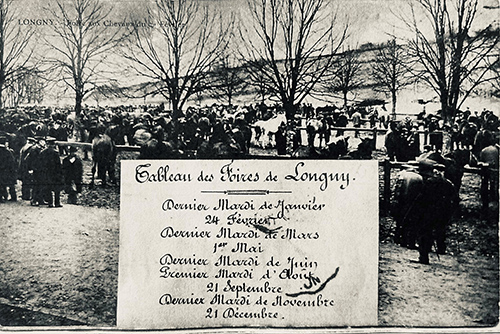 LONGNY. - Foire aux Chevaux du 24 Février
Tableau des Foires de Longny.
Dernier Mardi de Janvier
24 Février
Dernier Mardi de Mars
1er Mai
Dernier Mardi de Juin
Premier Mardi d'Août
21 Septembre
Dernier Mardi de Novembre
21 Décembre.